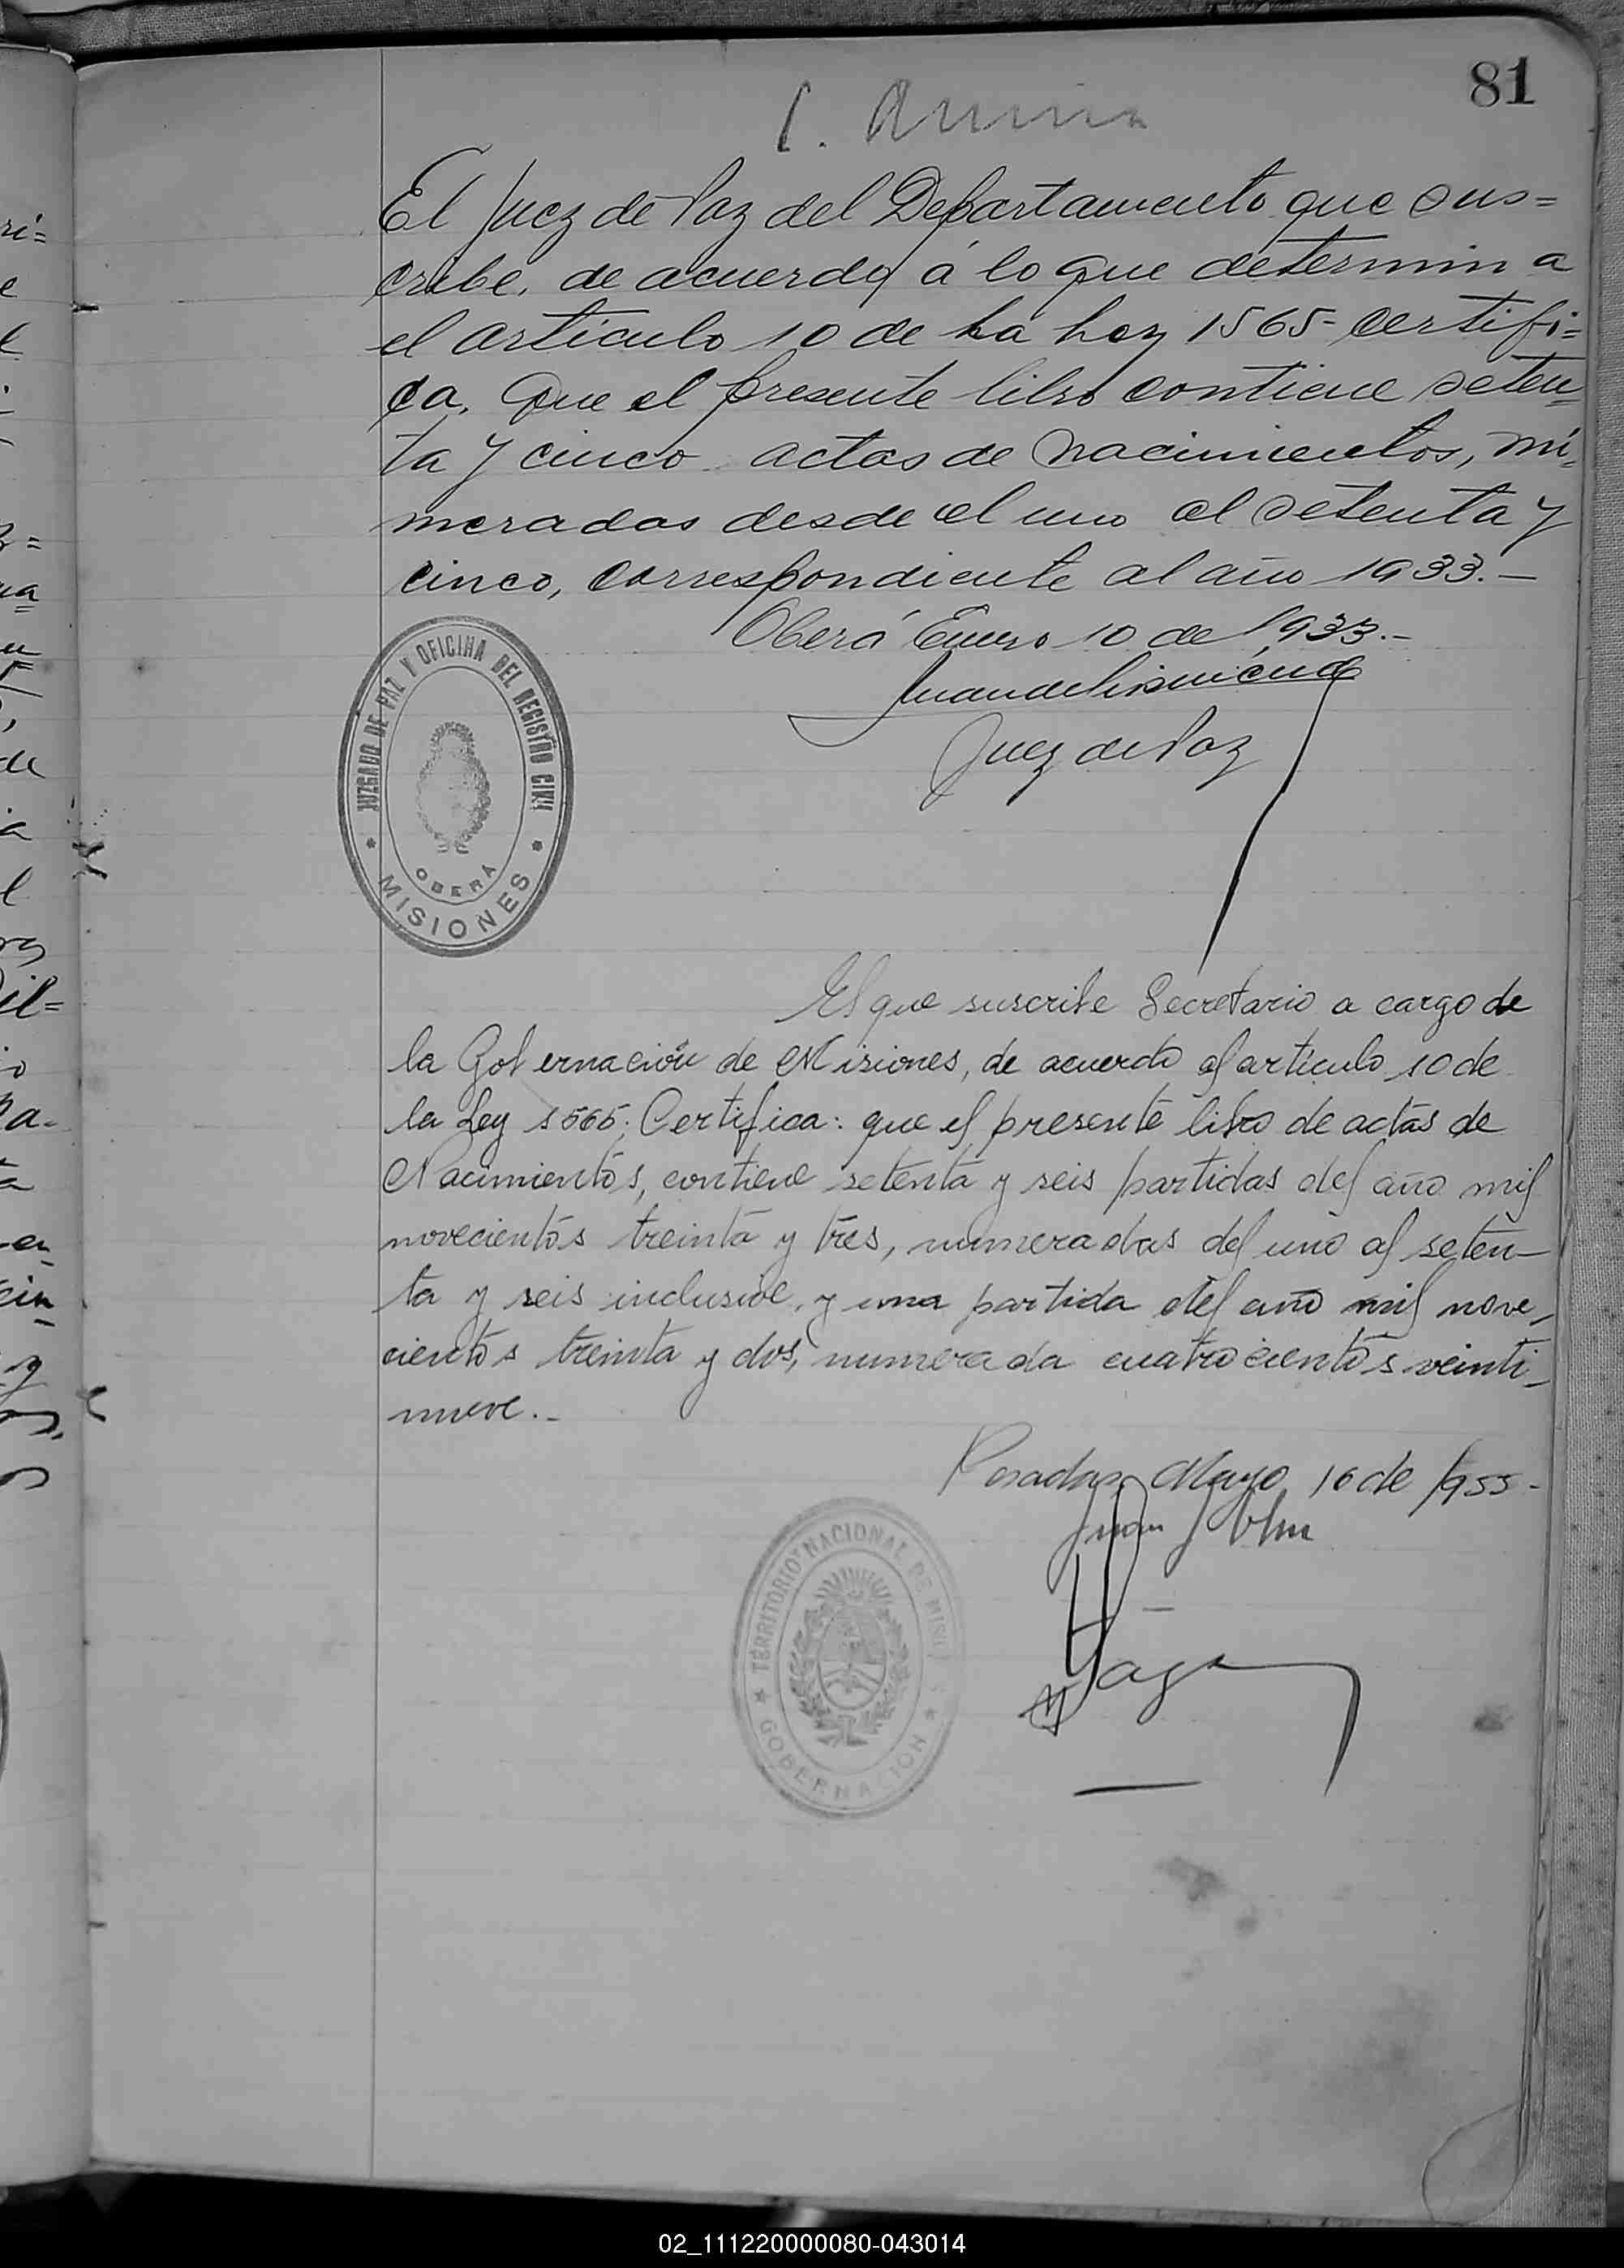 81
El Juez de Paz del Departamento que sus=
cribe, de acuerdo á lo que determina
el artículo 10 de la Ley 1565- certifi=
ca, que el presente libro contiene seten=
ta y cinco actas de nacimientos, nu=
meradas desde el uno al setenta y
cinco, correspondiente al año 1933.-
Oberá Enero 10 de 1933.-
Juez de Paz
JUZGADO DE PAZ Y OFICINA DEL REGISTRO CIVIL
OBERA
MISIONES
El que suscribe Secretario a cargo de
la Gobernación de Misiones, de acuerdo al artículo 10 de
la Ley 1565; Certifica: que el presente libro de actas de
Nacimientos, contiene setenta y seis partidas del año mil
novecientos treinta y tres, numeradas del uno al seten-
ta y seis inclusive, y una partida del año mil nove-
cientos treinta y dos, numerada cuatrocientos veinti-
nueve.-
Posadas, Mayo 16 de 1955-
Juan
TERRITORIO NACIONAL DE MISI
GOBERNACION
02_111220000080-043014